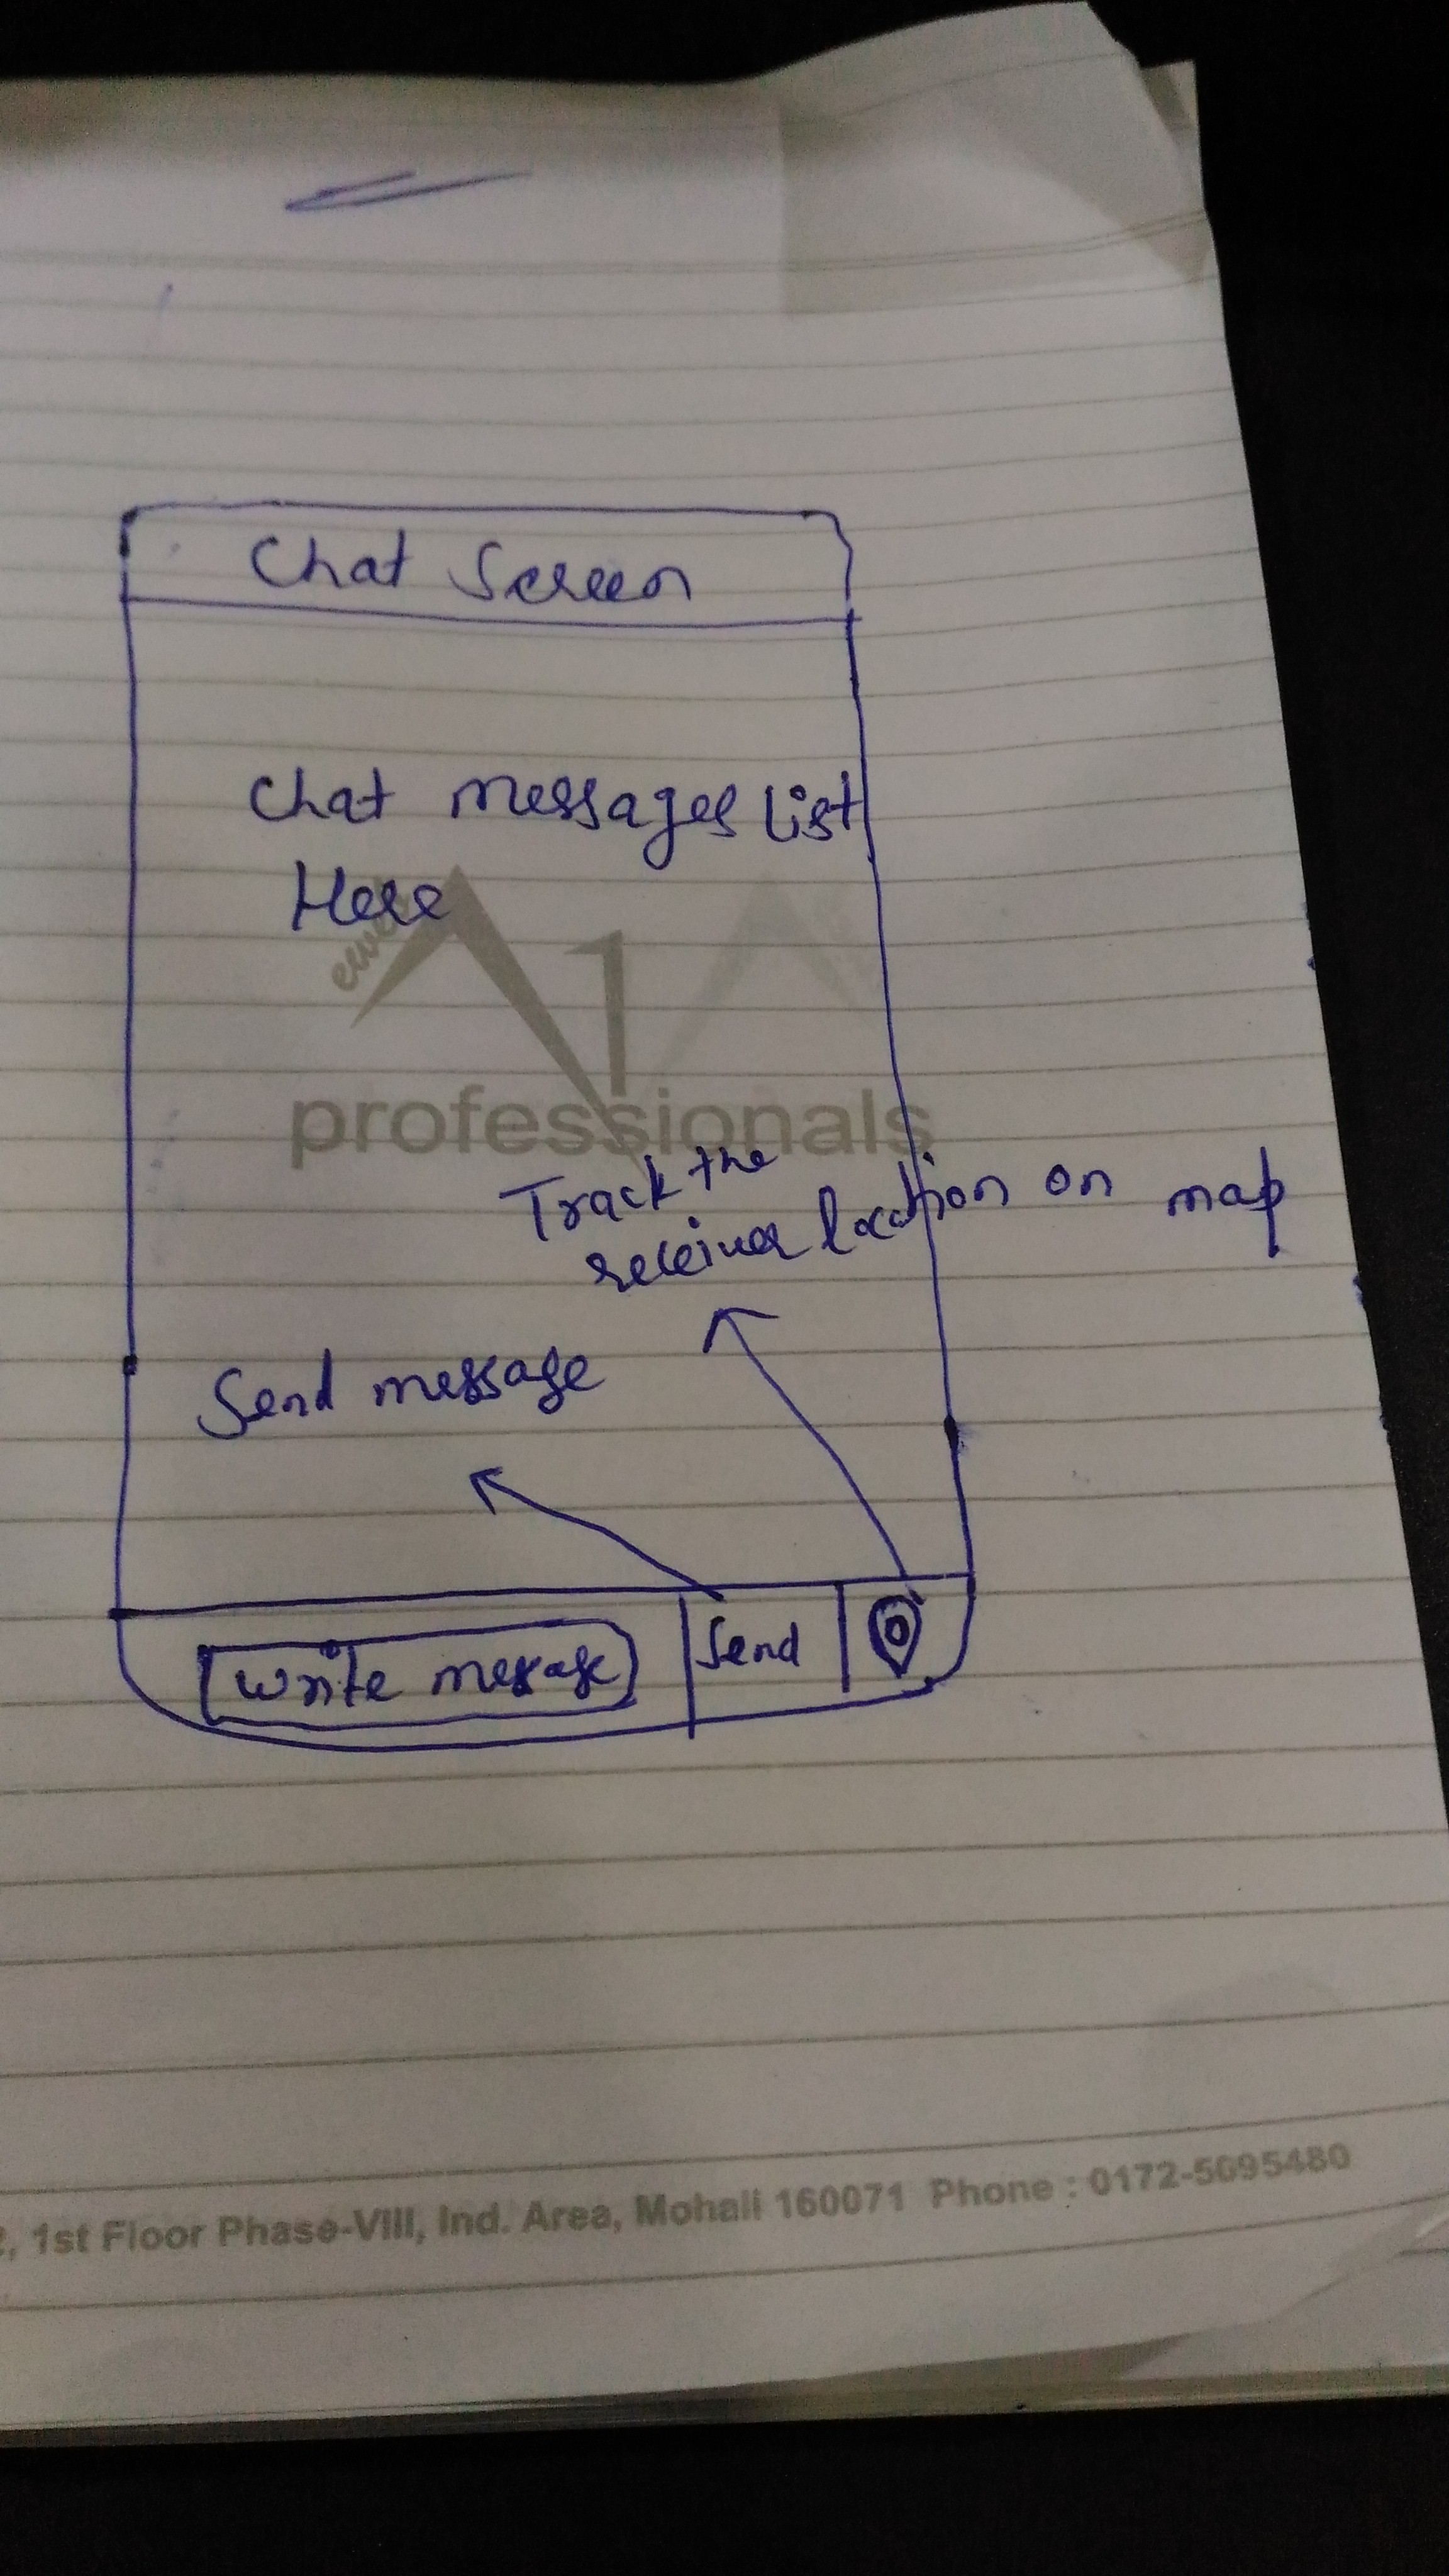 Chat Screen
Chat messages List
Here
professionals
Track the
receiver location on map
Send message
Write message
Send
, 1st Floor Phase-VIII, Ind. Area, Mohali 160071 Phone : 0172-5095480